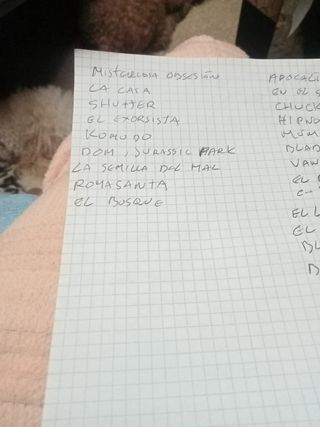 MISTERIOSA OBSESIÓN
LA CASA
SHUTTER
EL EXORSISTA
KOMODO
DOM, JURASSIC PARK
LA SEMILLA DEL MAL
ROMASANTA
EL BOSQUE
APOCALI
EN EL S
CHUCK
HIPNO
MUM
BLAD
VAN
EL
EL L
EL
BL